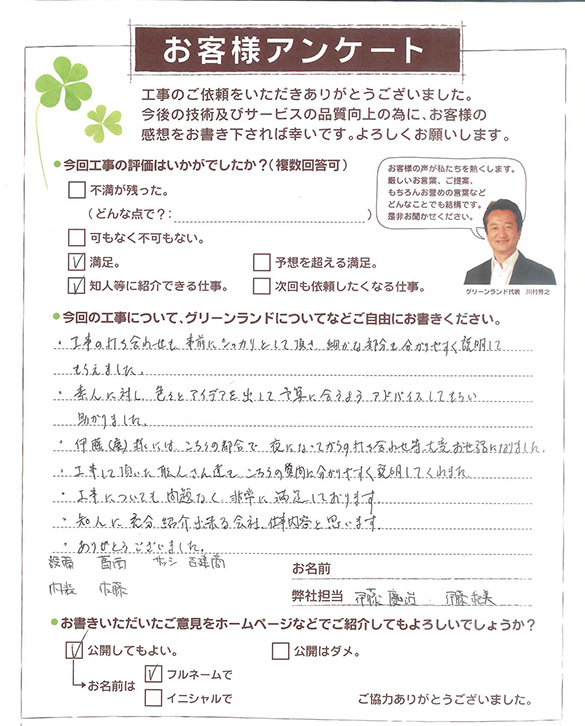 お客様アンケート
工事のご依頼をいただきありがとうございました。
今後の技術及びサービスの品質向上の為に、お客様の
感想をお書き下されば幸いです。よろしくお願いします。
●今回工事の評価はいかがでしたか?(複数回答可)
不満が残った。
(どんな点で?: )
可もなく不可もない。
満足。
予想を超える満足。
知人等に紹介できる仕事。
次回も依頼したくなる仕事。
お客様の声が私たちを熱くします。
厳しいお言葉、ご提案、
もちろんお誉めの言葉など
どんなことでも結構です。
是非お聞かせください。
グリーンランド代表 川村芳之
●今回の工事について、グリーンランドについてなどご自由にお書きください。
・工事の打ち合わせも事前にシッカリとして頂き 細かな部分も分かりやすく説明して
もらえました。
・素人に対し 色々とアイデアを出して予算に合うようアドバイスしてもらい
助かりました。
・伊藤(慶)様には、こちらの都合で 夜になってからの打ち合わせ等大変お世話になりました。
・工事して頂いた職人さん達も こちらの質問に分かりやすく説明してくれました
・工事についても 問題なく 非常に満足しております
・知人に充分紹介出来る会社、仕事内容と思います
・ありがとうございました。
設備 葛西 サッシ 吉建商
内装 佐藤
お名前
弊社担当 伊藤慶 伊藤
●お書きいただいたご意見をホームページなどでご紹介してもよろしいでしょうか?
公開してもよい。
公開はダメ。
お名前は
フルネームで
イニシャルで
ご協力ありがとうございました。